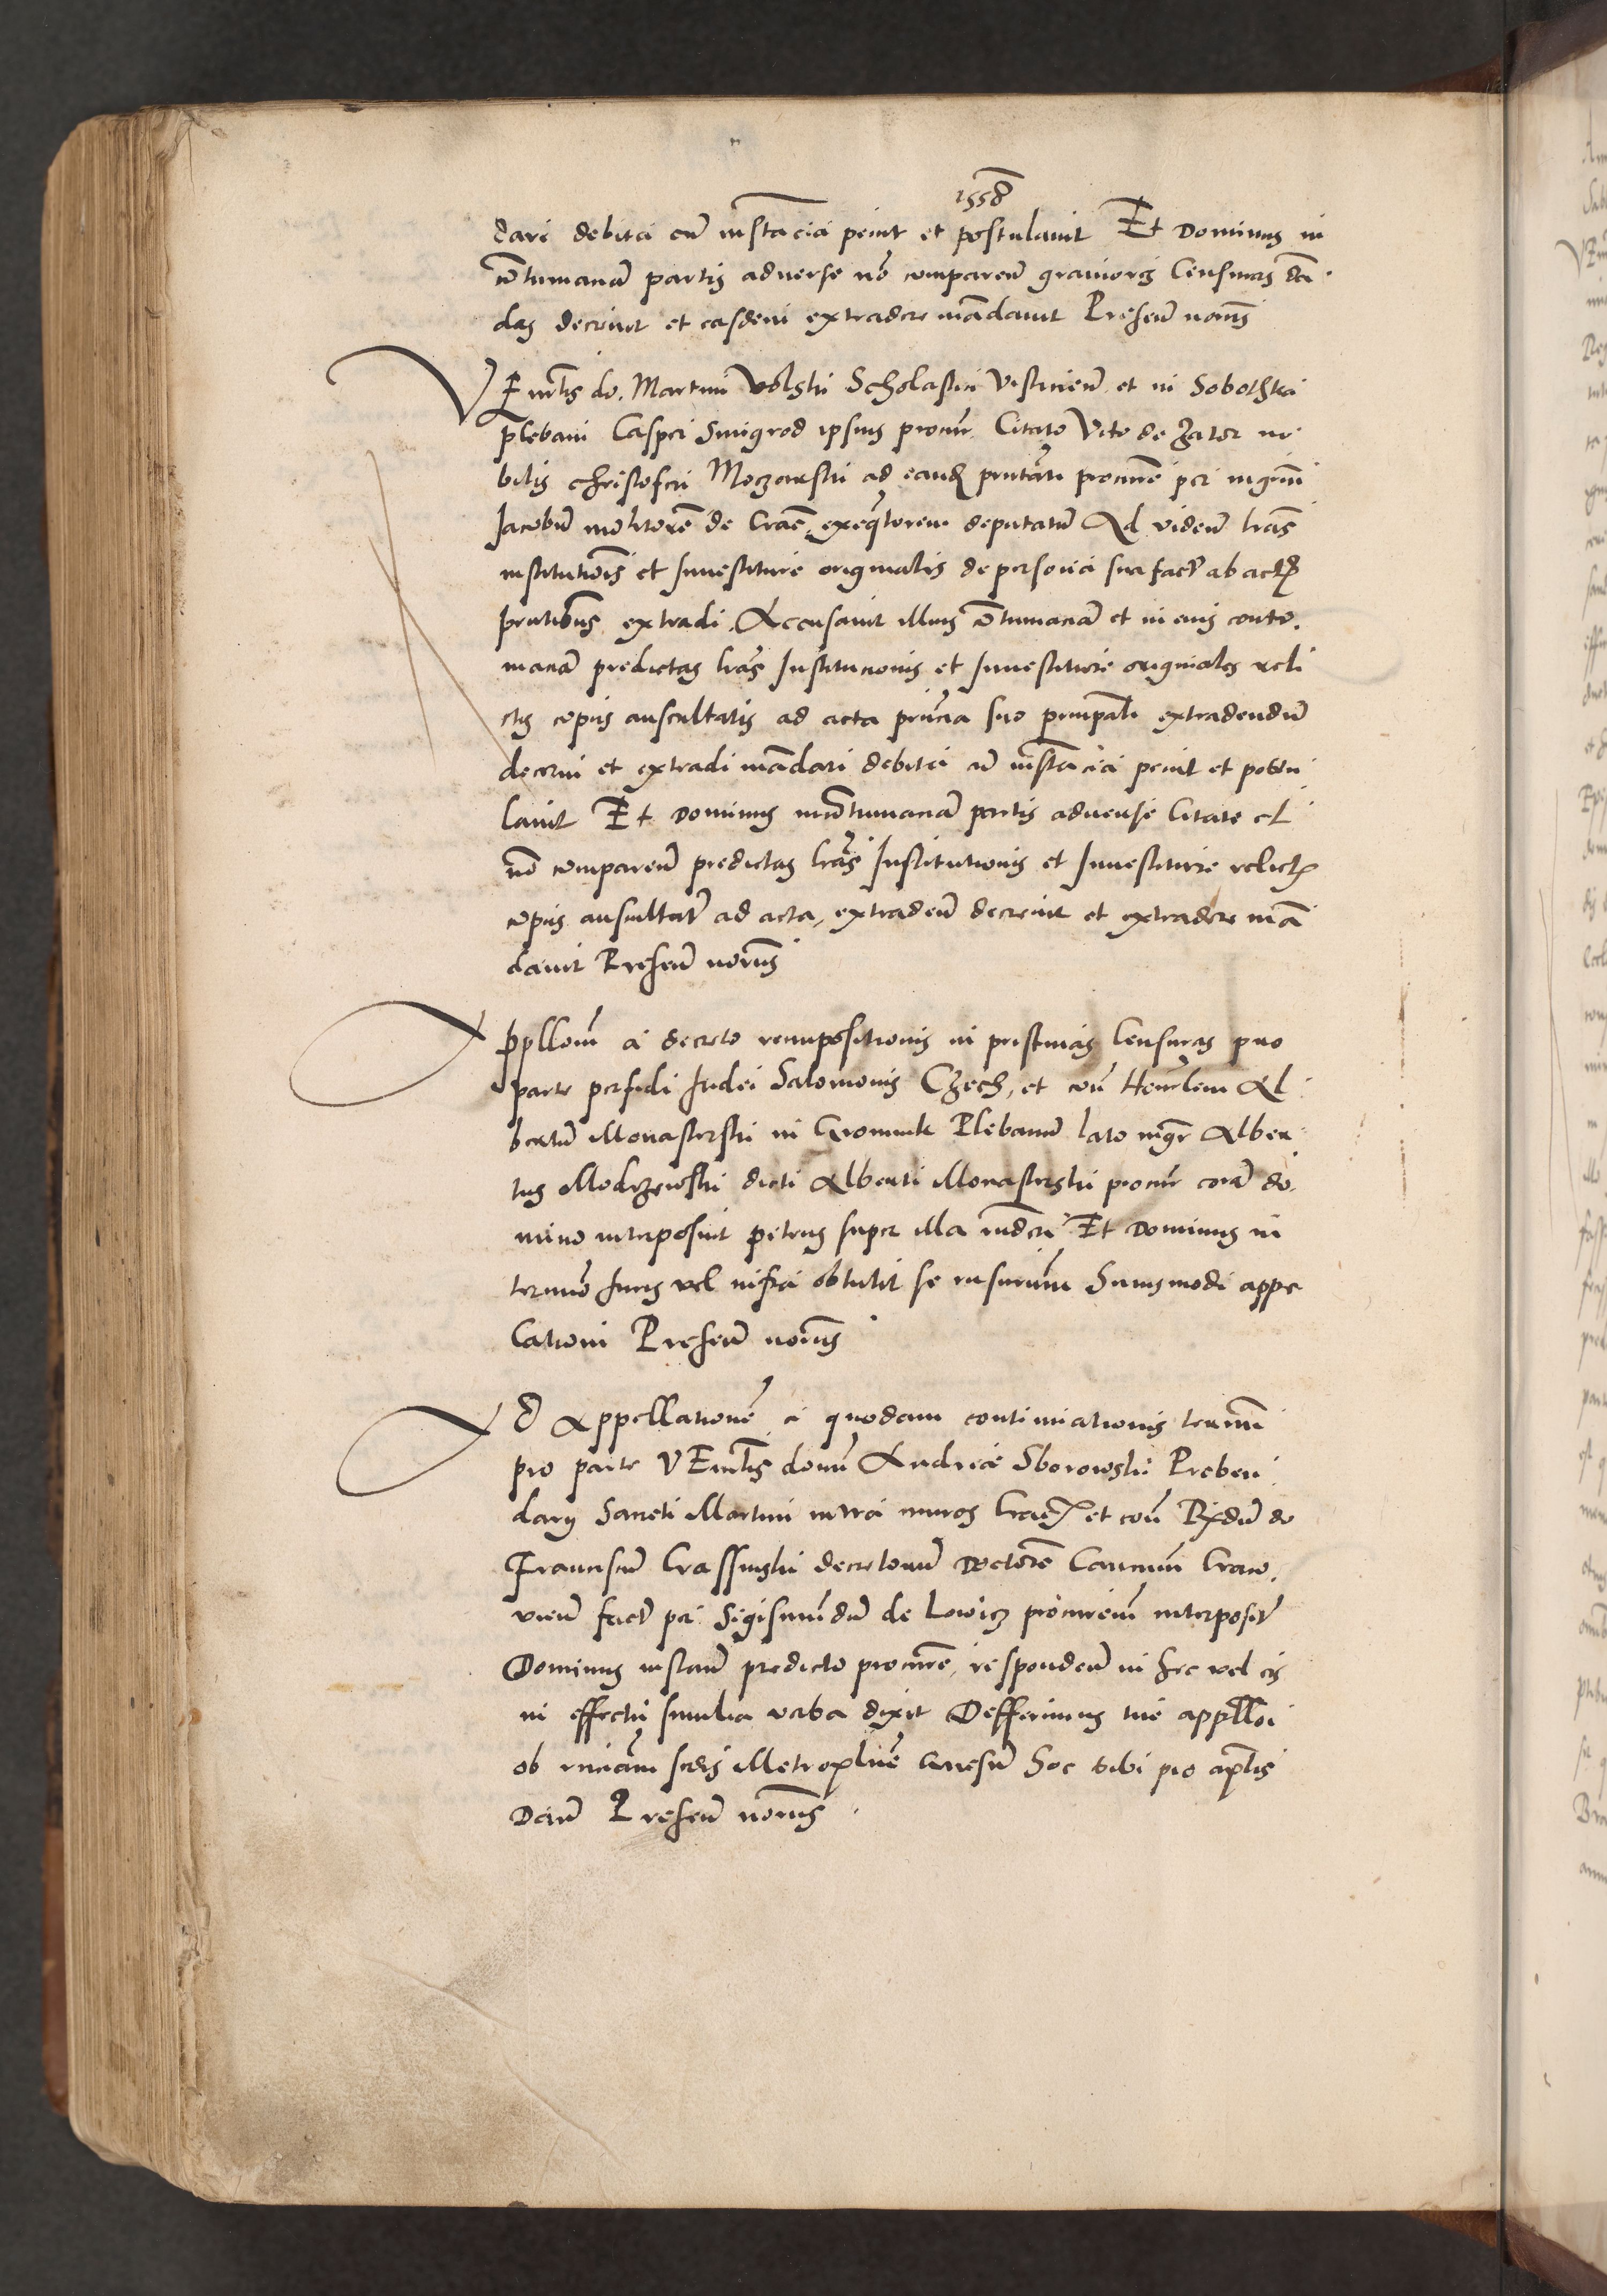 1558
dari debita cu instacia petiit et postulavit Et Dominus in
cotumacia partis adverse no comparen graviores Censuras da
das decrevit et easdem extradere madavit Presen notariis
V Enrlis do. Martini Volski Scholastici Visliciens et in Sobothka
plebani Caspar Smigrod ipsius procur. Citato Vito de Zator no
bilis christoferi Moczarski ad eand pnntati procure per mgrm
Jacobu molitore de Crac. exeqtorem deputatu Ad viden lras
institutiois et Investiture originales de persona sua fact ab actis
pntibus extradi. Accusavit illius cotumacia et in eius contu
macia predictas lras Institucionis et Investiture originales reli
ctis copiis auscultatis ad acta pncia suo principali extradendu
decerni et extradi madari debita cu instacia petiit et postu
lavit Et Dominus in cotumacia partis adverse Citate et
no comparen predictas lras Institutionis et Investiture relictis
copiis auscultat ad acta, extraden decrevit et extradere ma
davit Presen notariis
Appllom a decreto reimpositionis in pristinas Censuras pro
parte perfidi Judei Salomonis Czech, et con Honrlem Al
bertu Monasterski in Gromnik Plebanum lato mgr Alber
tus Modrzewski dicti Alberti Monasterski procur cora do
mino interposuit petens super illa rndere Et Dominus in
termio Juris vel infra obtulit se rnsurum huiusmodi appe
lationi Presen notariis
Ad Appellatione a quodam continuationis termini
pro parte VEnrlis domi Andree Sborowski Preben
dary Sancti Martini intra muros Crac et con Rndu do
Franciscu Crassinski decretorum Doctore Canonicum Craco
vien fact per Sigismundu de Lowicz procurem interposit
Dominus instan predicto procure, responden in hec vel eis
in effectu similia verba dixit Defferimus tue applloi
ob rnciam sedis Metroplitne Gnesn hoc tibi pro aplis
Dan Presen notariis